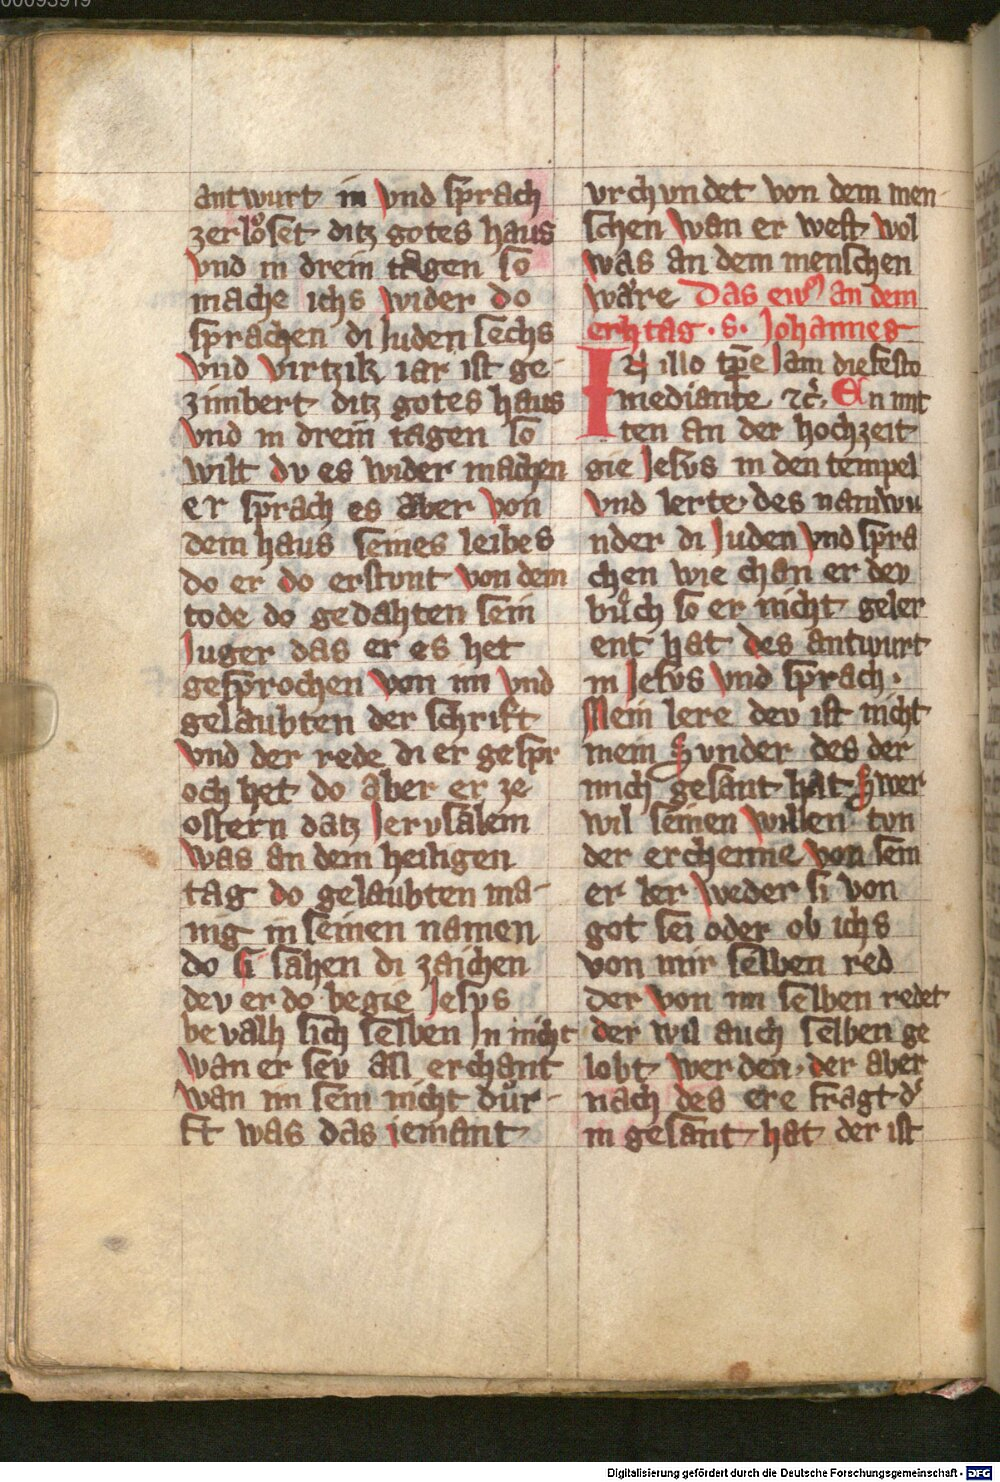 antwurt in vnd sprach
zerlöset ditz gotes haus
vnd in drein tagen so
mache ichs wider do
sprachen di Juden sechs
vnd virtzik iar ist ge-
zimbert ditz gotes haus
vnd in drein tagen so
wilt dv es wider machen
er sprach es aber von
dem haus seines leibes
do er do erstvnt von dem
tode do gedahten sein
Juger das er es het
gesprochen von im vnd
gelaubten der schrift
vnd der rede di er gespr
och het do aber er ze
ostern datz Jerusalem
was an dem heiligen
tag do gelaubten ma-
nig in seinen namen
do si sahen di zaichen
dev er do begie Jesvs
bevalh sich selben In nicht
wan er sev all erchant
wan im sein nicht dürf-
ft was das iemant
vrchvndet von dem men
schen wan er west wol
was an dem menschen
wäre Das ew⁹ an dem
erhtag · S · Johannes
IN illo tp̄e Jam die festo
mediante ꝛc̉. En mit
ten an der hochzeit
gie Jesvs in den tempel
vnd lerte des namwu
nder di Juden vnd spra
chen wie chan er dev
büch so er nicht geler
ent hat des antwurt
in Jesvs vnd sprach ·
Mein lere dev ist nicht
mein Svnder des der
mich gesant hat Swer
wil seinen willen tvn
der erchenne von sein
er ler weder si von
got sei oder ob ichs
von mir selben red
der von im selben redet
der wil auch selben ge
lobt werden · der aber
nach des ere fragt d̓
in gesant hat der ist
Digitalisierung gefördert durch die Deutsche Forschungsgemeinschaft - DFG